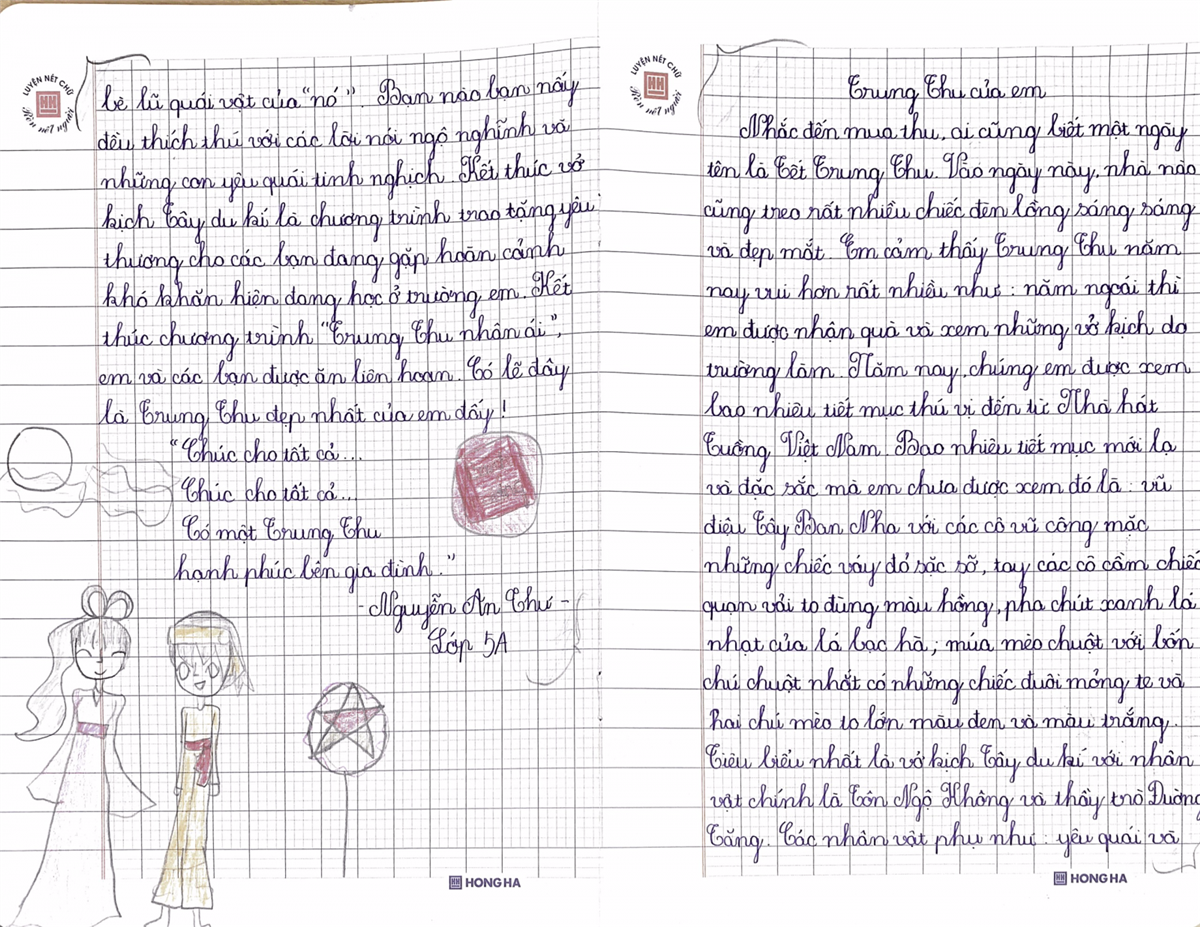 LUYỆN NÉT CHỮ
Rèn nết người
HH
Trung Thu của em
Nhắc đến mua thu, ai cũng biết một ngày
tên là Tết Trung Thu. Vào ngày này, nhà nào
cũng treo rất nhiều chiếc đèn lồng sáng sáng
và đẹp mắt. Em cảm thấy Trung Thu năm
nay vui hơn rất nhiều như: năm ngoái thì
em được nhận quà và xem những vở kịch do
trường làm. Năm nay, chúng em được xem
bao nhiêu tiết mục thú vị đến từ Nhà hát
Tuồng Việt Nam. Bao nhiêu tiết mục mới lạ
và đặc sắc mà em chưa được xem đó là: vũ
điệu Tây Ban Nha với các cô vũ công mặc
những chiếc váy đỏ sặc sỡ, tay các cô cầm chiếc
quạn vải to đùng màu hồng, pha chút xanh lá
nhạt của lá bạc hà; múa mèo chuột với bốn
chú chuột nhắt có những chiếc đuôi mỏng te và
hai chú mèo to lớn màu đen và màu trắng.
Tiêu biểu nhất là vở kịch Tây du kí với nhân
vật chính là Tôn Ngộ Không và thầy trò Đường
Tăng. Các nhân vật phụ như: yêu quái và
HH HONG HA
LUYỆN NÉT CHỮ
Rèn nết người
HH
bè lũ quái vật của "nó". Bạn nào bạn nấy
đều thích thú với các lời nói ngộ nghĩnh và
những con yêu quái tinh nghịch. Kết thúc vở
kịch Tây du kí là chương trình trao tặng yêu
thương cho các bạn đang gặp hoàn cảnh
khó khăn hiện đang học ở trường em. Kết
thúc chương trình "Trung Thu nhân ái",
em và các bạn được ăn liên hoan. Có lẽ đây
là Trung Thu đẹp nhất của em đấy!
"Chúc cho tất cả...
Chúc cho tất cả...
Có một Trung Thu
hạnh phúc bên gia đình."
- Nguyễn An Thư -
Lớp 5A
HH HONG HA